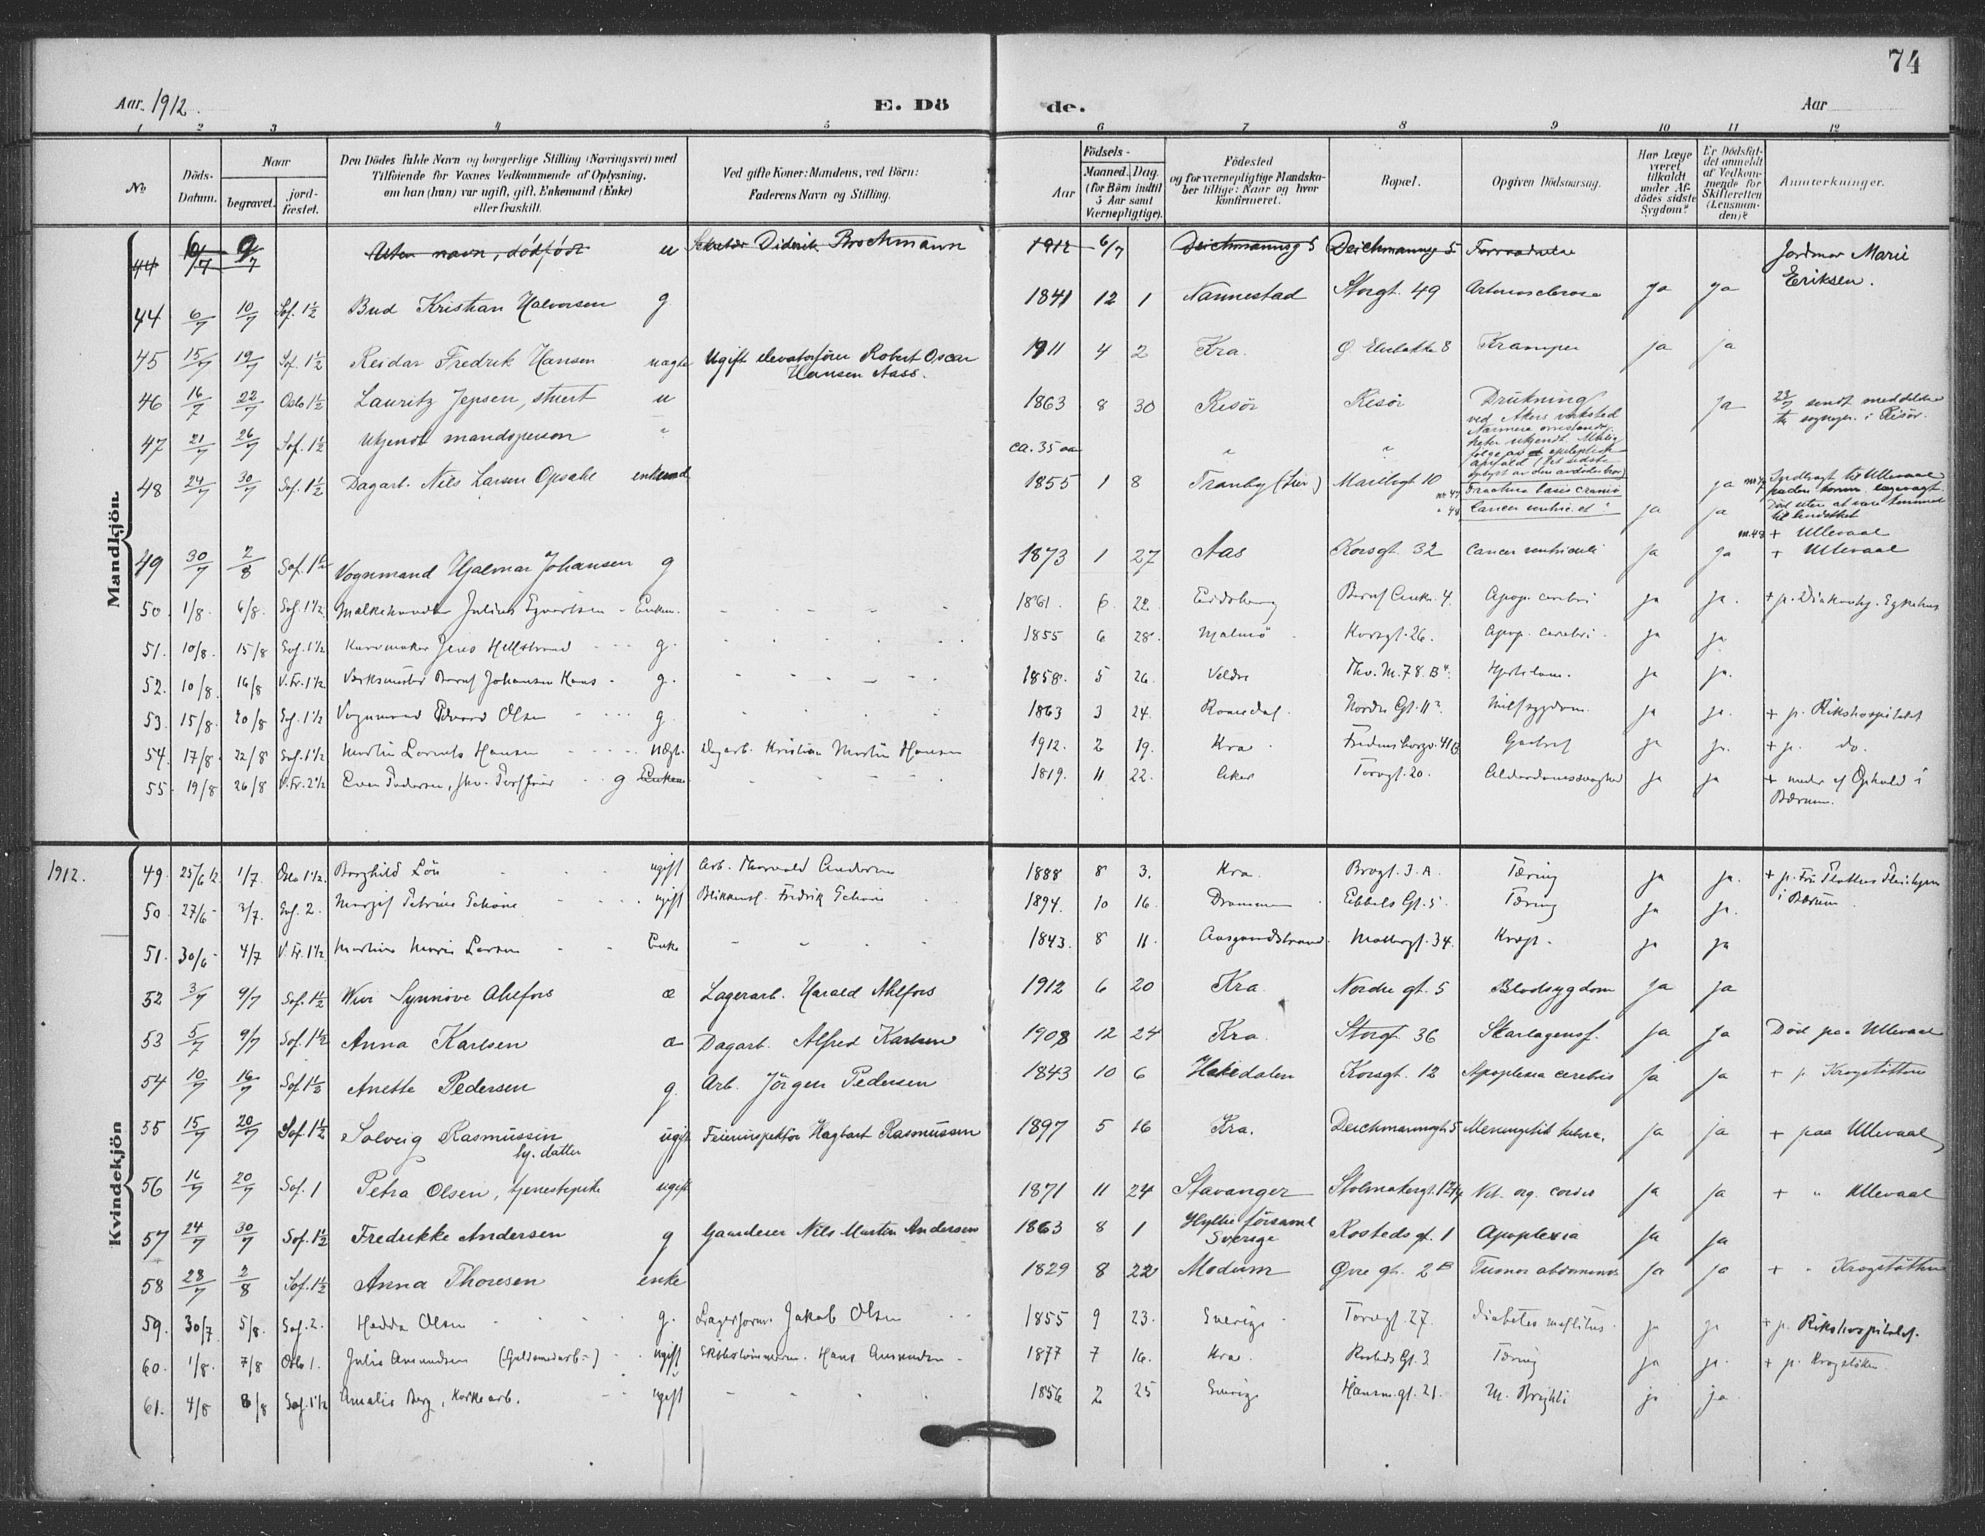 74
Aar 1912. E. Dö de. Aar
1 2 3 4 5 6 7 8 9 10 11 12
No
Döds-Datum.
Naar begravet. jord-fæstet.
Den Dödes fulde Navn og borgerlige Stilling (Næringsvei) med Tilföiende for Voxnes Vedkommende af Oplysning, om han (hun) var ugift, gift, Enkemand (Enke) eller fraskilt.
Ved gifte Koner: Mandens, ved Börn: Faderens Navn og Stilling.
Aar
Födsels- Maaned. Dag. (for Börn indtil 5 Aar samt Værnepligtige).
Födested og for værnepligtige Mandskaber tillige: Naar og hvor konfirmeret.
Bopæl.
Opgiven Dödsaarsag.
Har Læge været tilkaldt under Afdödes sidste Sygdom?
Er Dödsfaldet anmeldt af Vedkommende for Skifteretten (Lensmanden)?
Anmerkninger.
Mandkjön
44 6/7 9/7 Uten navn, dödfödt u Diderik Brochmann 1912 6/7 Deichmannsg 5 Deichmannsg 5 Jordmor Marie Eriksen.
44 6/7 10/7 Sof. 1½ Bud Kristian Halvorsen g 1841 12 1 Nannestad Storgt. 49 Arteriosclerose ja ja
45 15/7 19/7 Sof. 1½ Reidar Fredrik Hansen uægte Ugift elevatorförer Robert Oscar Hansen Aass. 1911 4 2 Kra. 8 Kramper ja ja
46 16/7 22/7 Oslo 1½ Lauritz Jepsen, stuert u 1863 8 30 Risör Risör Drukning ved Akers verksted ja 23/7 sendt meddelelse til sognepr. i Risör.
47 21/7 26/7 Sof. 1½ Ukjendt mandsperson " ca. 35 aar " " ja
48 24/7 30/7 Sof. 1½ Dagarb. Nils Larsen Opsahl enkemand 1855 1 8 Tranby (Lier) Maribogt 10 Fractura basis cranii Cancer ventric. ja ja + Ullevaal
49 30/7 2/8 Sof. 1½ Vognmand Hjalmar Johansen g 1873 1 27 Aas Korsgt 32 Cancer ventriculi ja ja + Ullevaal
50. 1/8. 6/8. Sof. 1½ Melkehandler Julius - Enkem. 1861. 6 22. Eidsberg 4. Apop. cerebri ja ja. + p.
51. 10/8. 15/8 Sof. 1½ Kurvmaker Jens Hellstrand g. 1855 6 28. Malmö Korsgt. 26. Apop. cerebri. ja ja.
52. 10/8. 16/8 V. Fr. 1½ Verksmester Bernt Johansen g. 1858. 5 26. Veldre ja ja.
53. 15/8. 20/8 Sof. 1½ Vognmand Edvard Olsen g. 1863 3 24. Romedal Nordre Gt. 11 ja ja. + p. Rikshospitalet
54. 17/8. 22/8 Sof. 1½ Martin Hansen uægt. Dagarb. Kristian Martin Hansen 1912. 2 19. Kra. Fredensborgv. 41 ja ja. + p. do.
55. 19/8 26/8 V. Fr. 2½ Even Pedersen, g 1819. 11 22. Aker Torvgt. 20. Alderdomssvaghed ja ja + under et Ophold i Bærum.
Kvindekjön
1912. 49. 25/6 12 1/7. Oslo 1½. Borghild ugift Arb. Thorvald Andersen 1888 8 3. Kra. Brogt. 3. A. Tæring ja ja. + i Bærum
50. 27/6 3/7. Sof. 2. ugift Blikkensl. Fredrik 1894. 10 16. Drammen Ebbels Gt. 5. Tæring ja ja.
51. 30/6 4/7 V. Fr. 1½ Martine Marie Larsen Enke 1843. 8 11. Aasgaardstrand. Mollergt. 34. Kræft. ja ja
52 3/7 9/7 Sof. 1½ Wivi Synnöve Ahlfors æ Lagerarb. Harald Ahlfors 1912 6 20 Kra. Nordre gt. 5 Blodsygdom ja ja
53 5/7 9/7 Sof. 1½ Anna Karlsen æ Dagarb. Alfred Karlsen 1908 12 24 Kra. Storgt 36 Skarlagensf. ja ja Död paa Ullevaal
54 10/7 16/7 Sof. 1½ Anette Pedersen g. Arb. Jörgen Pedersen 1843 10 6 Hakedalen Korsgt 12 Apoplexia cerebri ja ja + p. Krogstötten
55 15/7 20/7 Sof. 1½ Solveig Rasmussen hj. datter ugift Feierinspektör Hagbart Rasmussen 1897 5 16 Kra. Deichmannsgt. 5 ja ja + paa Ullevaal
56 16/7 20/7 Sof. 1 Petra Olsen, tjenestepike ugift 1871 11 24 Stavanger Vit. org. cordis ja ja + " Ullevaal
57 24/7 30/7 Sof. 1½ Fredrikke Andersen g Nils Martin Andersen 1863 8 1 Hyllie församl Sverige Rosteds gt. 1 Apoplexia ja ja
58 28/7 2/8 Sof. 1½ Anna Thoresen enke 1829 8 22 Modum Övre gt. 2 B Tumor abdominis ja ja + " Krogstötten
59. 30/7 5/8. Sof. 2. Hedda Olsen g. Lagerform. Jakob Olsen 1855 9 23. Sverige Torvgt. 27. Diabetes mellitus. ja ja + p. Rikshospitalet.
60. 1/8. 7/8 Oslo 1. Julie Amundsen (Guldsmedarb.) ugift Hans Amundsen 1877 7 16. Kra. Rosteds Gt. 3. Tæring ja ja. + p. Krogstötten
61. 4/8 8/8 Sof. 1½ Amalie Berg, Korkearb. ugift 1856 2 25 Sverige Hausm. gt. 21. M. Brightii ja ja.